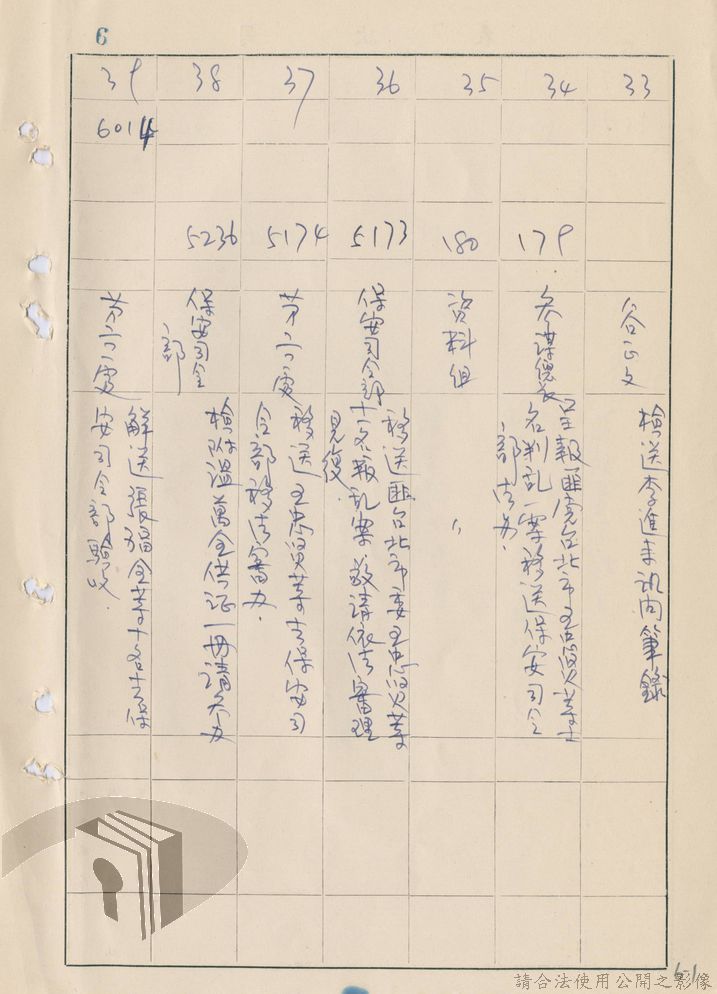 6
33
谷正文
檢送李進來訊問筆錄
34
179
參謀總長
呈報匪党台北市王忠賢等十
名判乱一案移送保安司令
部法办.
35
180
資料組
〃
36
5173
保安司令部
移送匪台北市委王忠賢等
十名叛乱案敬請依法審理
見復.
37
5174
第二處
移送王忠賢等去保安司
令部移法審办.
38
5236
保安司令
部
檢附溫萬金供证一冊請參办
39
6014
第二處
解送張福全等十名去保
安司令部驗收.
6-1
請合法使用公開之影像